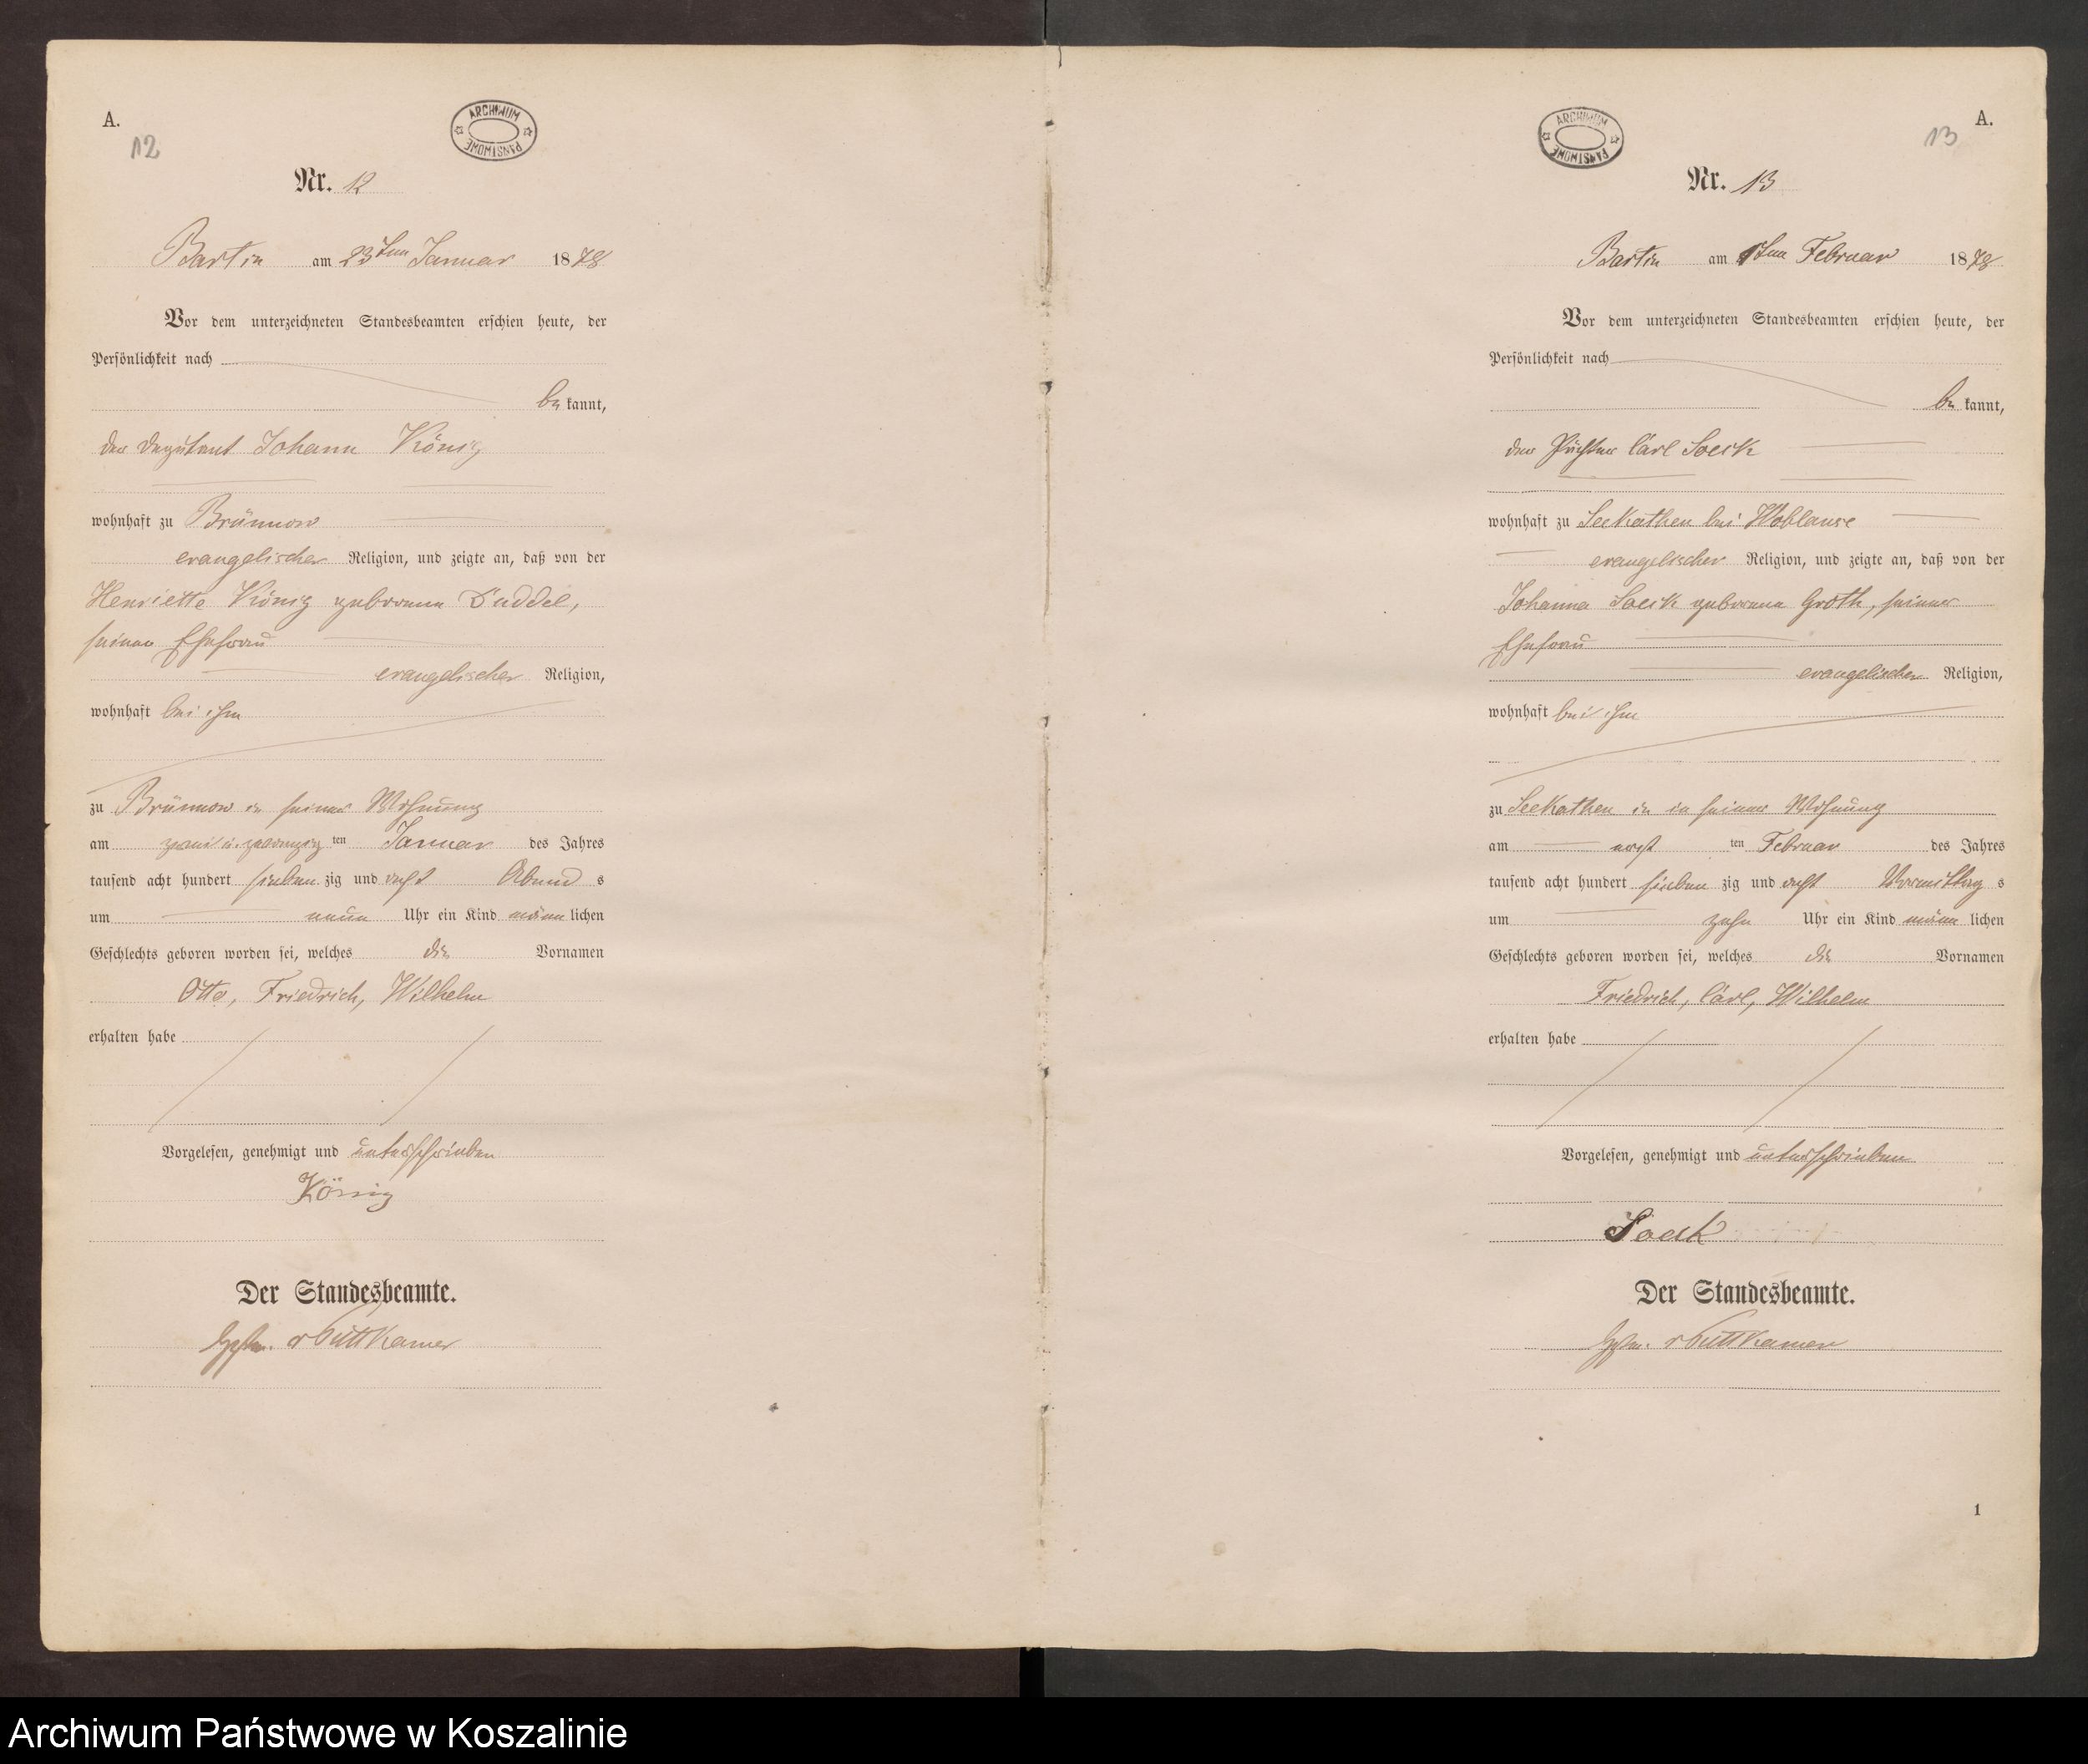 A.
12
ARCHIWUM PAŃSTWOWE
Nr. 12
Bartin am 23ten Januar 1878
Vor dem unterzeichneten Standesbeamten erschien heute, der
Persönlichkeit nach
be kannt,
der Deputant Johann König
wohnhaft zu Brünnow
evangelischer Religion, und zeigte an, daß von der
Henriette König geborenen Duddel,
seiner Ehefrau
evangelischer Religion,
wohnhaft bei ihm
zu Brünnow in seiner Wohnung
am zwei u. zwanzig ten Januar des Jahres
tausend acht hundert sieben zig und acht Abend s
um neun Uhr ein Kind männ lichen
Geschlechts geboren worden sei, welches die Vornamen
Otto, Friedrich, Wilhelm
erhalten habe
Vorgelesen, genehmigt und unterschrieben
König
Der Standesbeamte.
v Puttkamer
A.
13
ARCHIWUM PAŃSTWOWE
Nr. 13
Bartin am 1ten Februar 1878
Vor dem unterzeichneten Standesbeamten erschien heute, der
Persönlichkeit nach
be kannt,
der Pächter Carl Soeck
wohnhaft zu Seekathen bei Woblanse
evangelischer Religion, und zeigte an, daß von der
Johanna Soeck geborenen Groth, seiner
Ehefrau
evangelischer Religion,
wohnhaft bei ihm
zu Seekathen in in seiner Wohnung
am erst ten Februar des Jahres
tausend acht hundert sieben zig und acht Vormittag s
um zehn Uhr ein Kind männ lichen
Geschlechts geboren worden sei, welches die Vornamen
Friedrich, Carl, Wilhelm
erhalten habe
Vorgelesen, genehmigt und unterschrieben
Soeck
Der Standesbeamte.
v Puttkamer
1
Archiwum Państwowe w Koszalinie